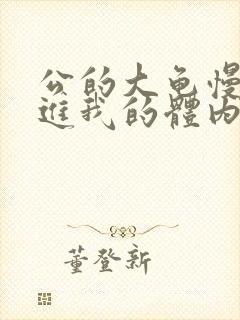 公的大龟慢
进我的體内
董登新